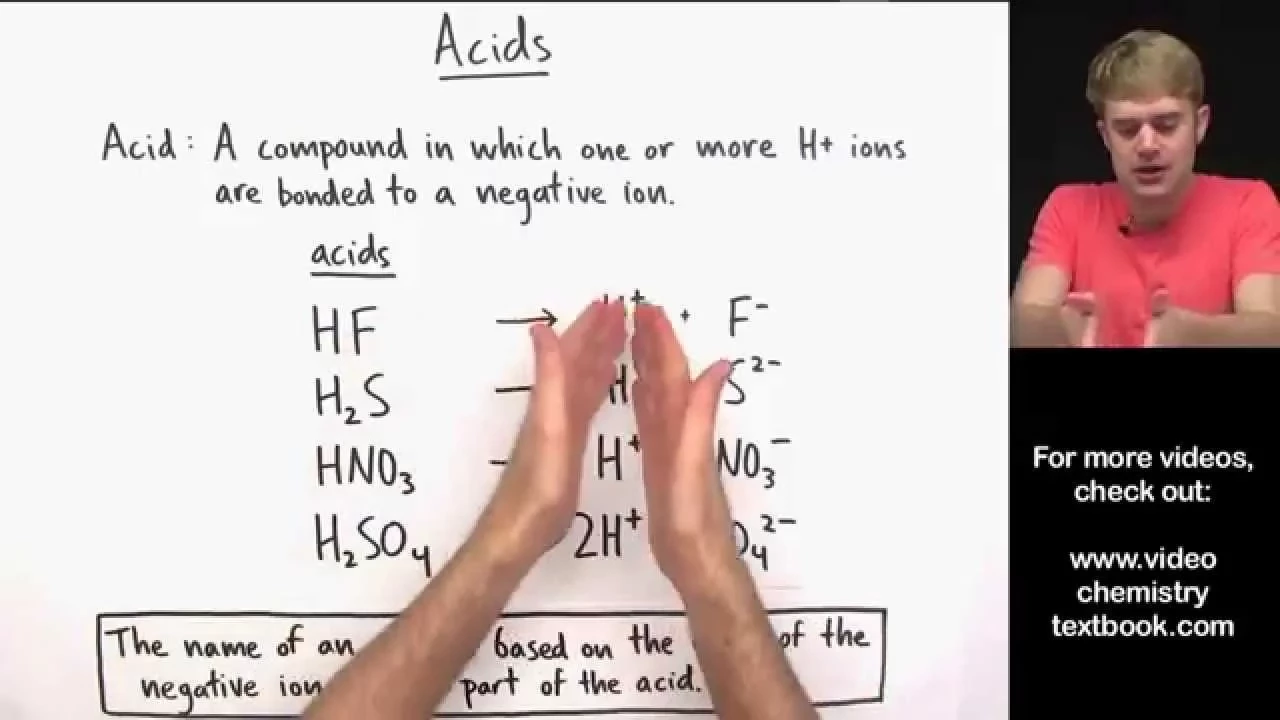 Acids
Acid: A compound in which one or more H+ ions
are bonded to a negative ion.
acids
HF → H⁺ + F⁻
H₂S H S²⁻
HNO₃ H⁺ NO₃⁻
H₂SO₄ 2H⁺ O₄²⁻
The name of an based on the of the
negative ion part of the acid.
For more videos,
check out:
www.video
chemistry
textbook.com